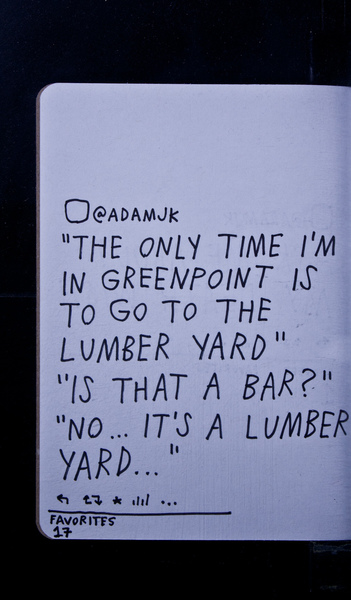 @ADAMJK
"THE ONLY TIME I'M
IN GREENPOINT IS
TO GO TO THE
LUMBER YARD"
"IS THAT A BAR?"
"NO... IT'S A LUMBER
YARD..."
FAVORITES
17